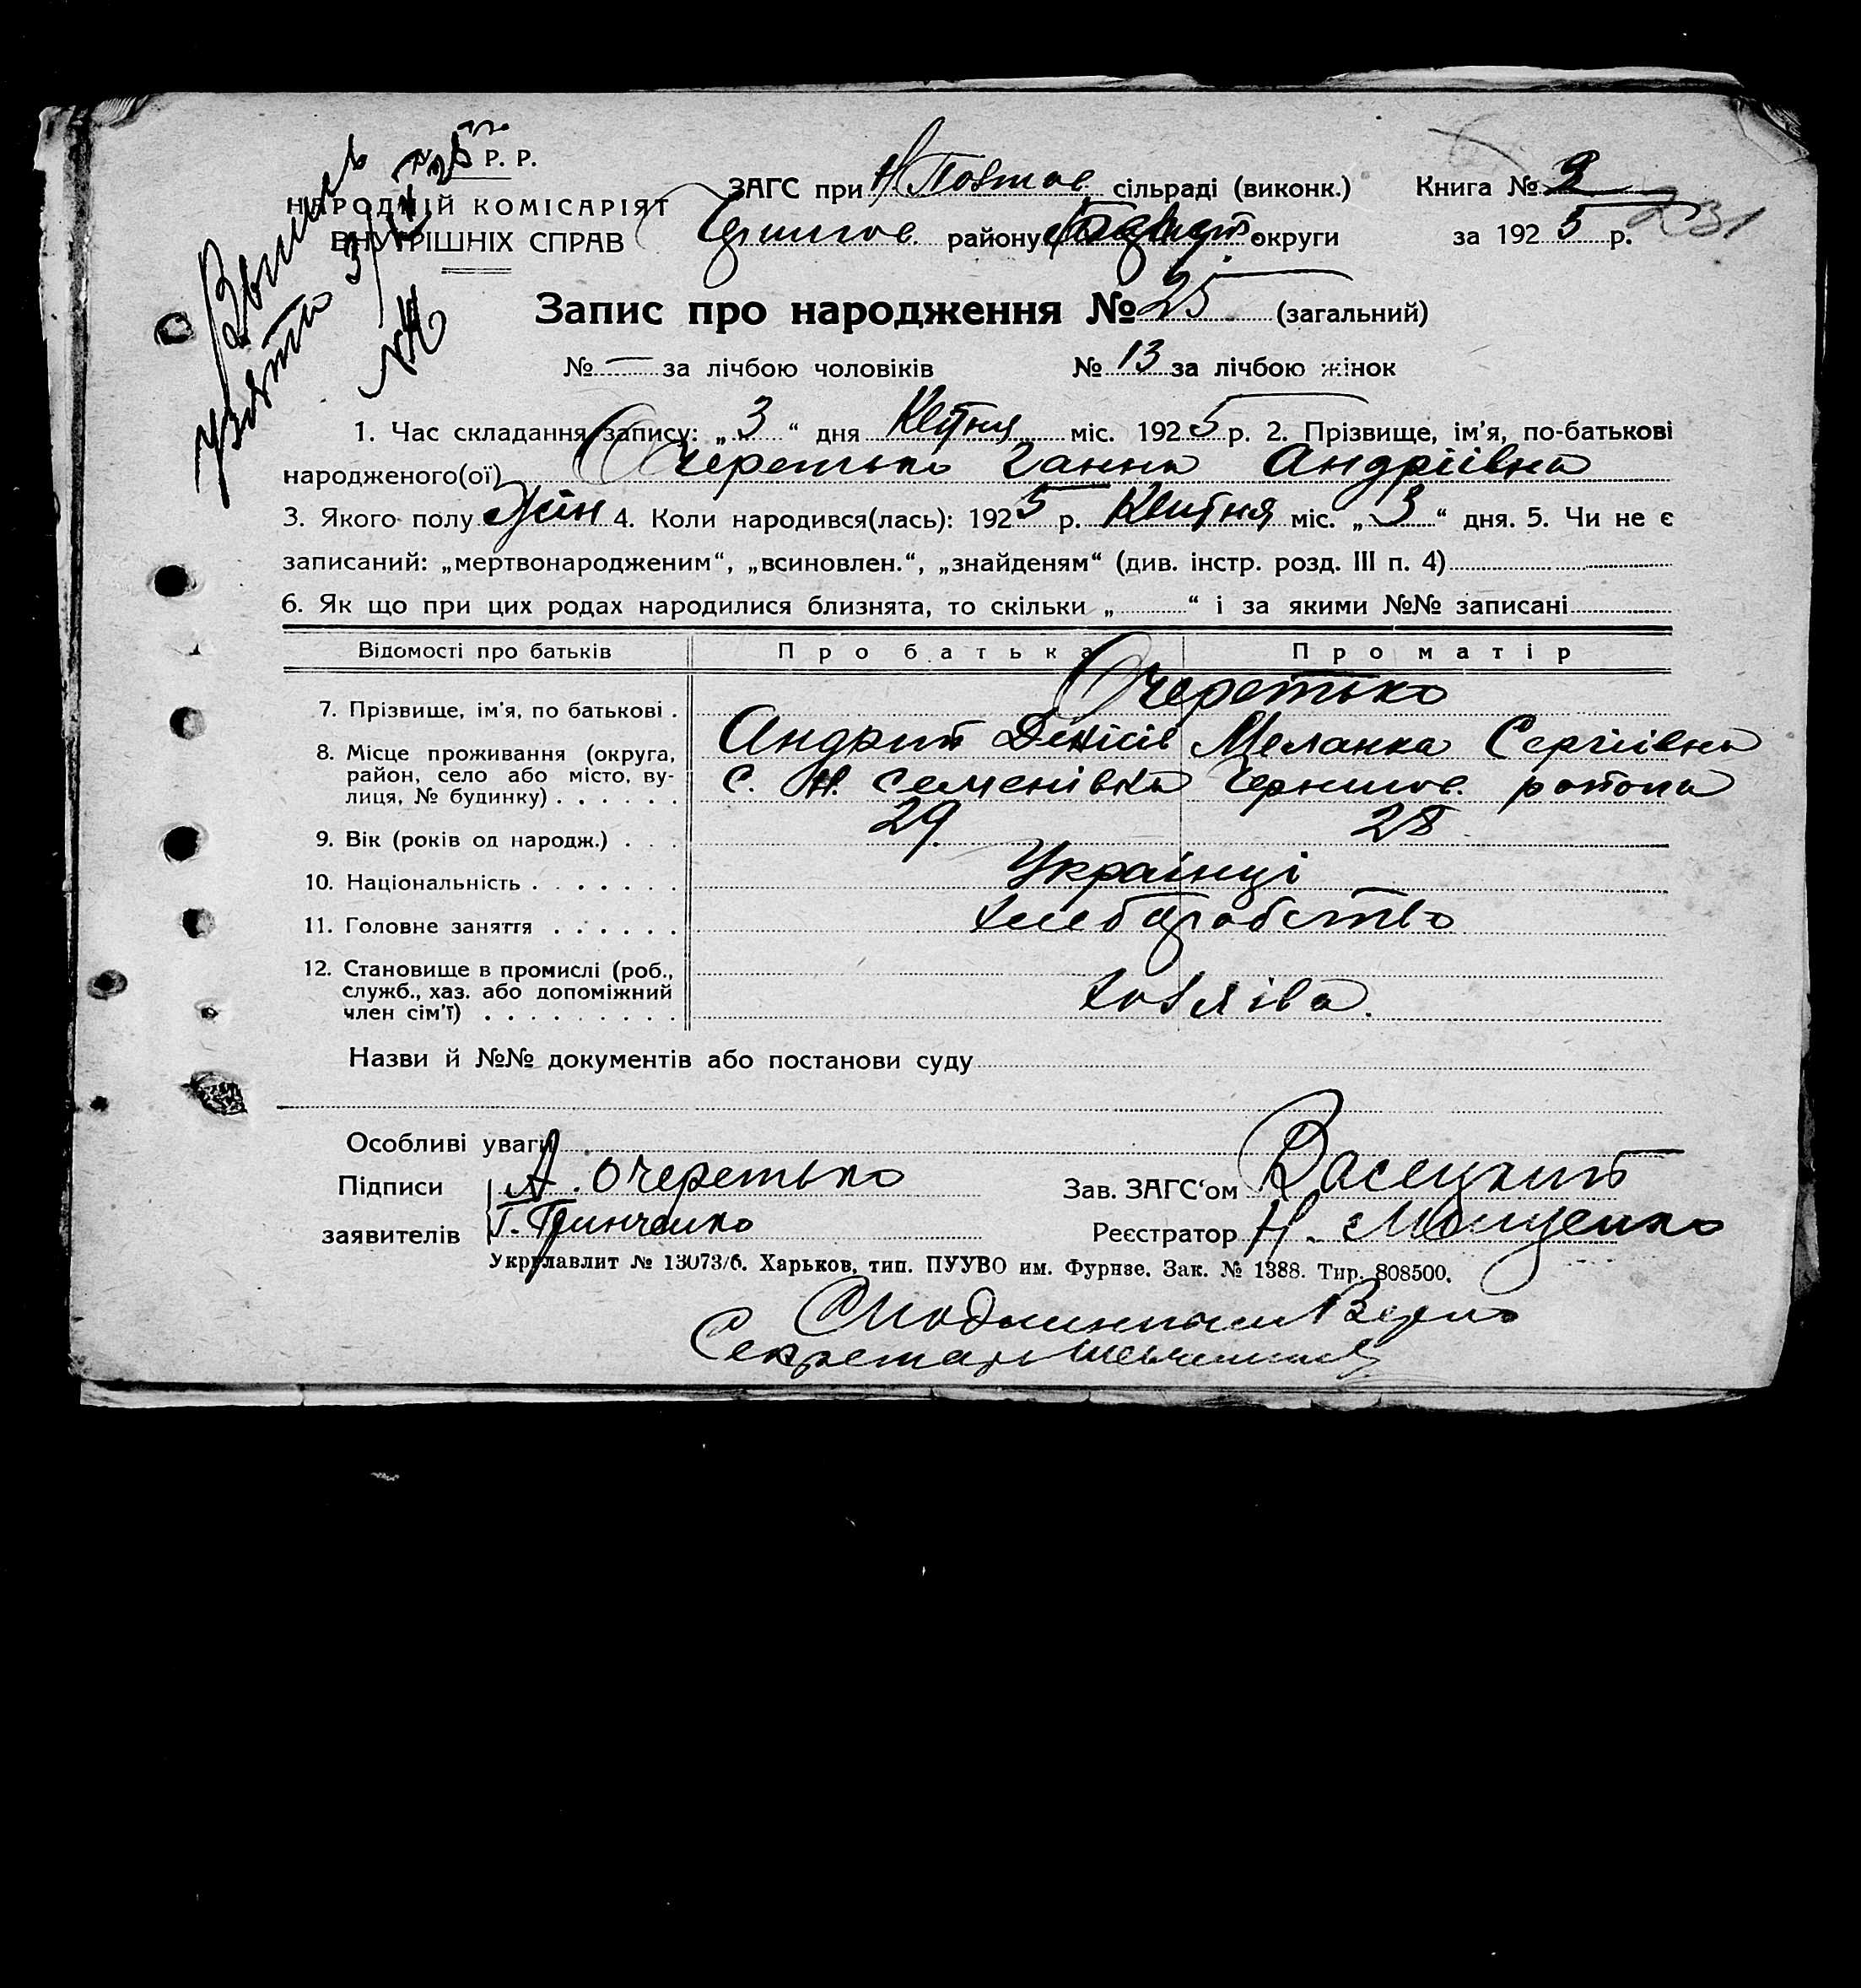 Р. Р.
НАРОДНІЙ КОМІСАРІЯТ
ВНУТРІШНІХ СПРАВ
ЗАГС при сільраді (виконк.) Книга №
району округи за 1925 р. 231
Запис про народження № 25 (загальний)
№ — за лічбою чоловіків № 13 за лічбою жінок
1. Час складання запису: „3“ дня Квітня міс. 1925 р. 2. Прізвище, ім'я, по-батькові
народженого(ої) Очеретько Ганна Андріівна
3. Якого полу жін 4. Коли народився(лась): 1925 р. Квітня міс. „3“ дня. 5. Чи не є
записаний: „мертвонародженим“, „всиновлен.“, „знайденям“ (див. інстр. розд. III п. 4)
6. Як що при цих родах народилися близнята, то скільки „ “ і за якими №№ записані
Відомості про батьків Про батька Про матір
7. Прізвище, ім'я, по батькові . Очеретько
Андрий Денісів Меланка Сергіівна
8. Місце проживання (округа,
район, село або місто, ву-
лиця, № будинку) . . . . . . с. Н. Семенівка Чернигов. района
9. Вік (років од народж.) . . . 29. 28
10. Національність . . . . . . . Украінці
11. Головне заняття . . . . . . хлеборобство
12. Становище в промислі (роб.,
служб., хаз. або допоміжний
член сім'ї) . . . . . . . . . хазяіва.
Назви й №№ документів або постанови суду
Особливі уваги
Підписи А. Очеретько Зав. ЗАГС'ом Васецкий
заявителів Г. Гринченко Реєстратор Н. Мощенко
Укрглавлит № 13073/б. Харьков, тип. ПУУВО им. Фурнзе. Зак. № 1388. Тир. 808500.
С подлинным Верно
Секретарь